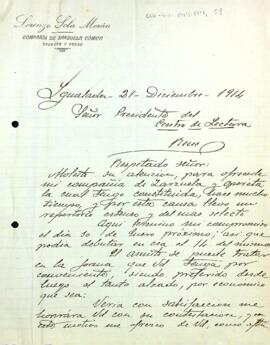 Lorenzo Sola Morán
COMPAÑÍA DE ZARZUELA CÓMICA
Igualada - 31 - Diciembre - 1914
Señor Presidente del
Centro de Lectura
Reus
Respetado señor:
Molesto su atencion, para ofrecerle
mi compañia de Zarzuela y opereta
la cual tengo constituida, hace mucho
tiempo, y por esta causa llevo un
repertorio extenso y del mas selecto
Aqui termino mi compromiso
el dia 30 de Enero próximo; asi que
podia debutar en esa el 16 del mismo
El asunto se puede tratar
en la forma que Vd tenga por
conveniente, siendo preferido desde
luego el tanto alzado, por economico
que sea:
Veria con satisfaccion me
honrara Vd con su contestacion, y con
este motivo me ofrezco de Vd. como